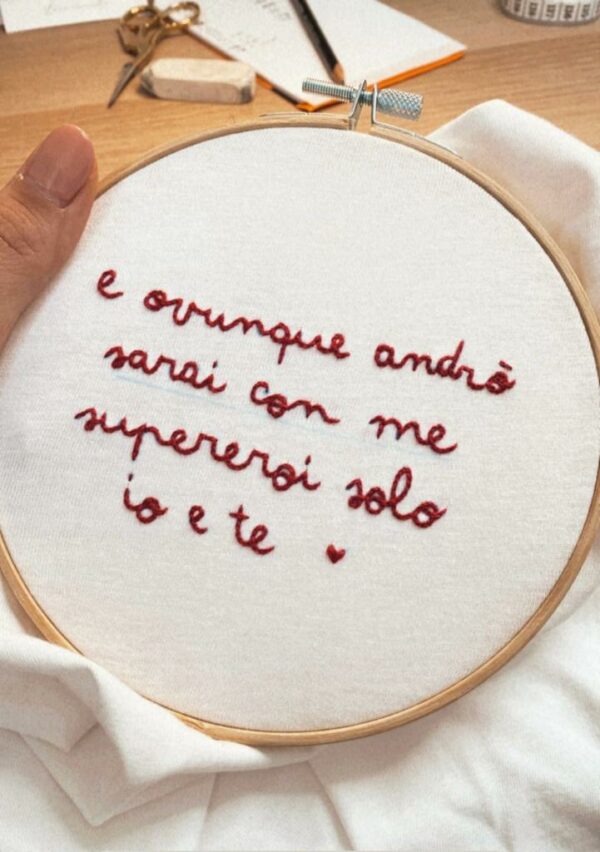 e ovunque andrò
sarai con me
supereroi solo
io e te ♥